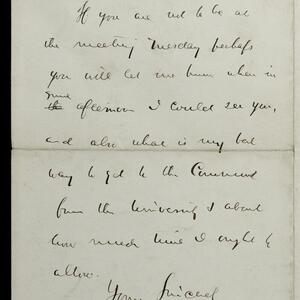 If you are not to be at
the meeting Tuesday perhaps
you will let me know when in
the afternoon I could see you,
and also what is my best
way to get to the Command
from the University & about
how much time I ought to
allow.
Yours Sincerely